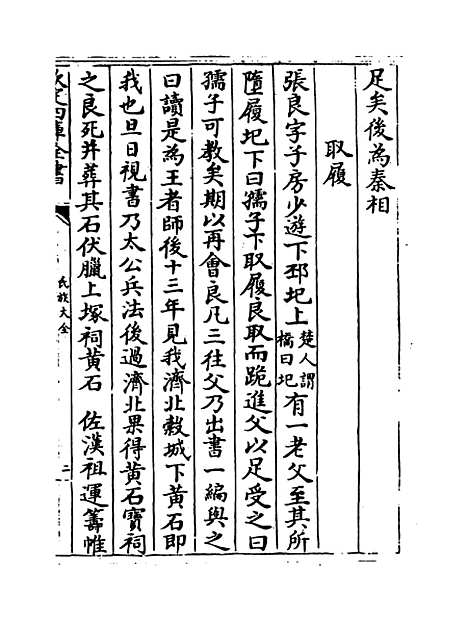 足矣後為秦相
取履
張良字子房少遊下邳圯上楚人謂橋曰圯有一老父至其所
墮履圯下曰孺子下取履良取而跪進父以足受之曰
孺子可教矣期以再會良凡三往父乃出書一編與之
曰讀是為王者師後十三年見我濟北穀城下黄石即
我也旦日視書乃太公兵法後過濟北果得黄石寶祠
之良死并葬其石伏臘上塚祠黄石 佐漢祖運籌帷
欽定四庫全書
氏族大全